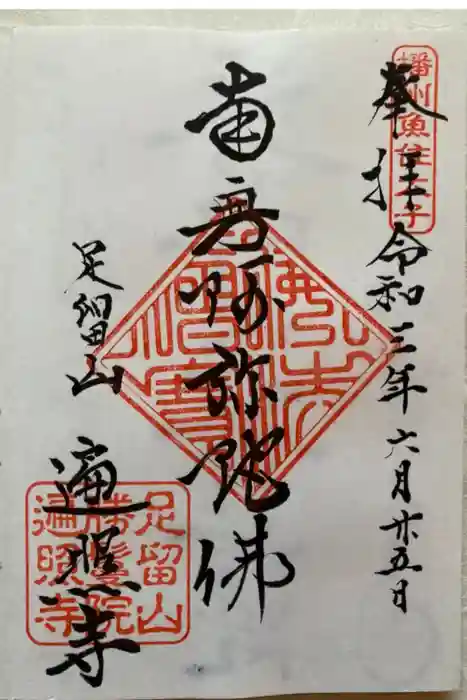 奉拝 令和三年六月廿五日
播州魚住太子
南無阿弥陀佛
佛法僧寳
足留山
遍照寺
足留山
勝鬘院
遍照寺